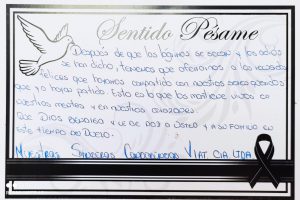 Sentido Pésame
Después de que las lágrimas se secan y los adiós
se han dicho, tenemos que aferrarnos a los recuerdos
felices que hayamos compartido con nuestros seres queridos
que ya hayan partido. Esto es lo que los mantiene vivos en
nuestras mentes y en nuestros corazones.
Que Dios bendiga y le de paz a usted y a su familia en
este tiempo de duelo.
Nuestras Sinceras Condolencias VIAT CIA. LTDA